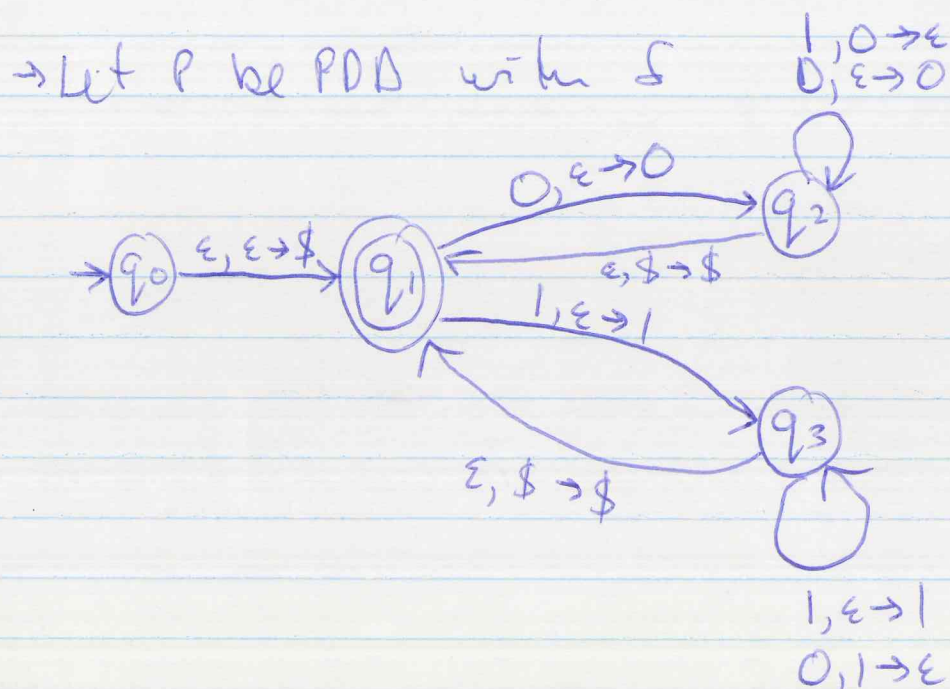 → Let P be PDA with δ
1, 0 → ε
0, ε → 0
0, ε → 0
q2
q0
ε, ε → $
q1
ε, $ → $
1, ε → 1
q3
ε, $ → $
1, ε → 1
0, 1 → ε